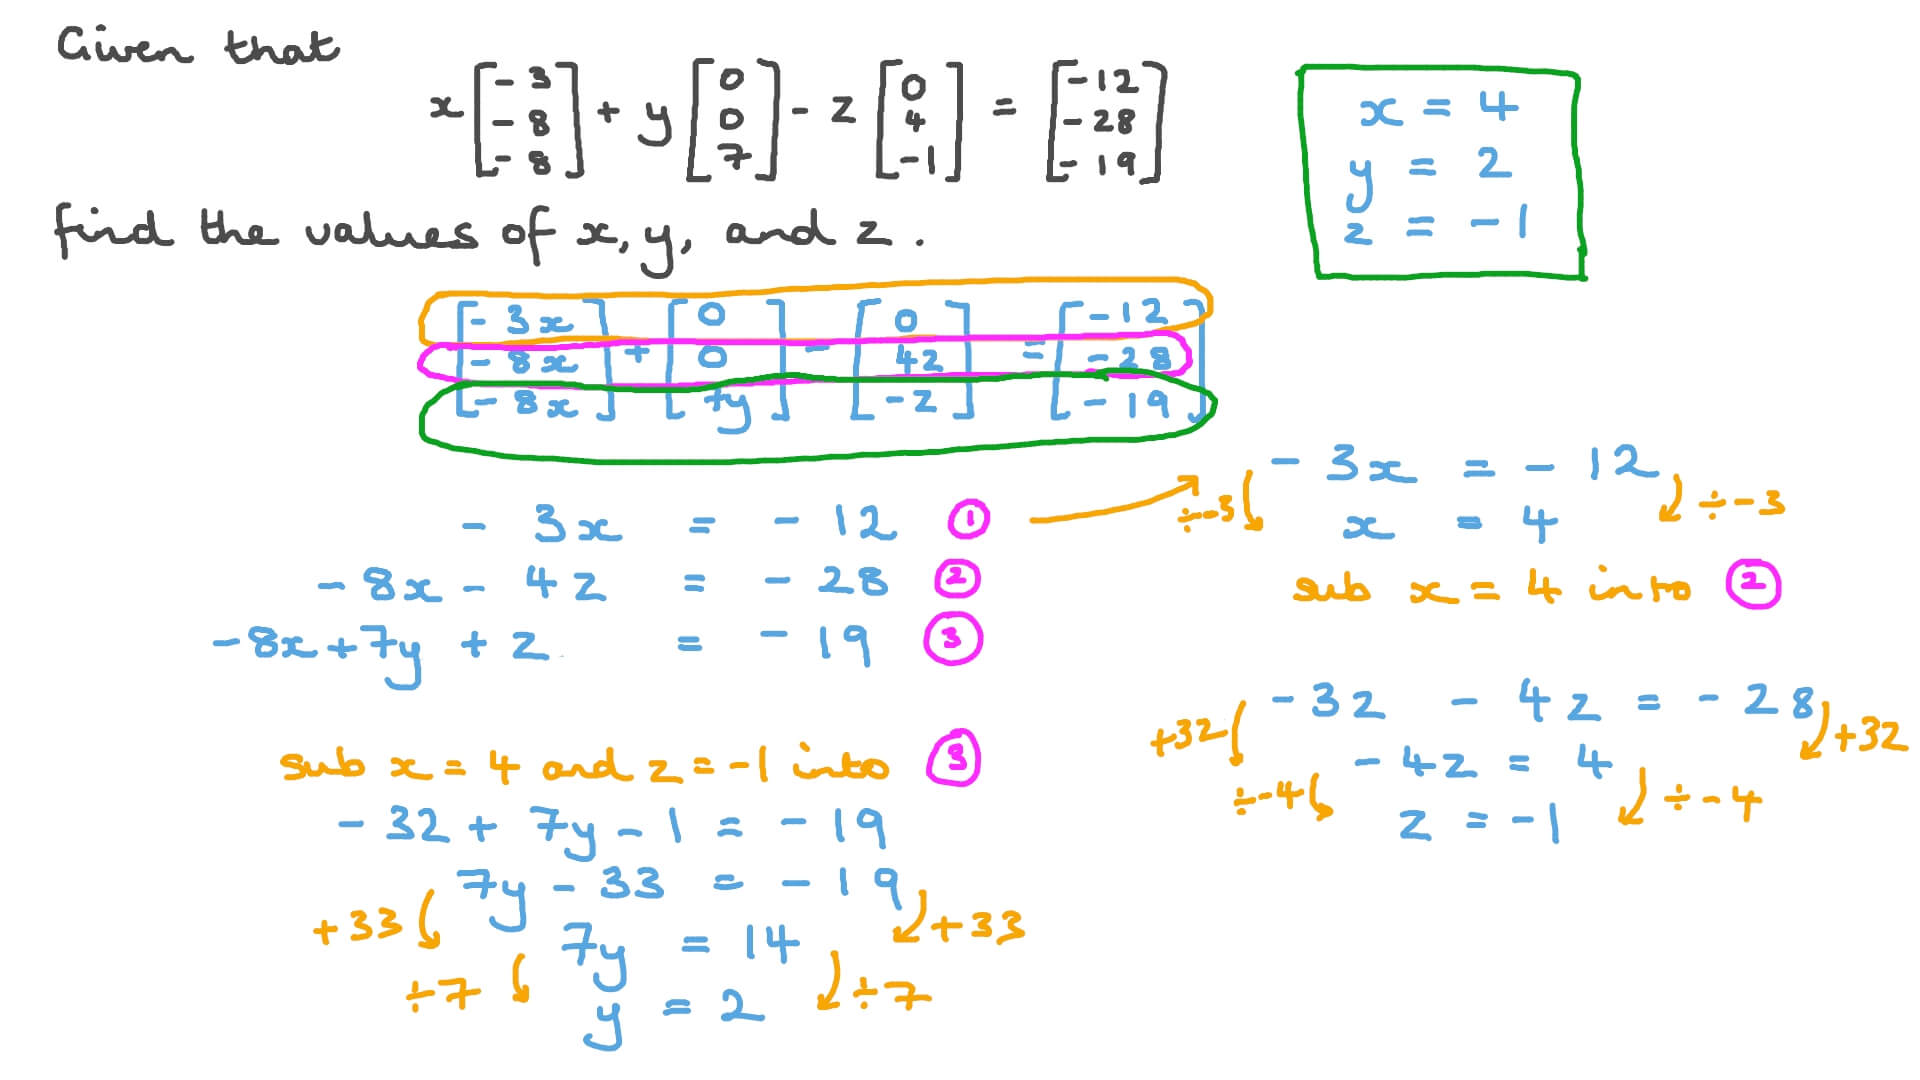 Given that
x[-3 -8 -8] + y[0 0 7] - z[0 4 -1] = [-12 -28 -19]
find the values of x, y, and z.
x = 4
y = 2
z = -1
[-3x -8x -8x] + [0 0 7y] - [0 4z -z] = [-12 -28 -19]
-3x = -12 ①
-8x - 4z = -28 ②
-8x + 7y + z = -19 ③
-3x = -12
÷-3 ÷-3
x = 4
sub x = 4 into ②
-32 - 4z = -28
+32 +32
-4z = 4
÷-4 ÷-4
z = -1
sub x = 4 and z = -1 into ③
-32 + 7y - 1 = -19
7y - 33 = -19
+33 +33
7y = 14
÷7 ÷7
y = 2